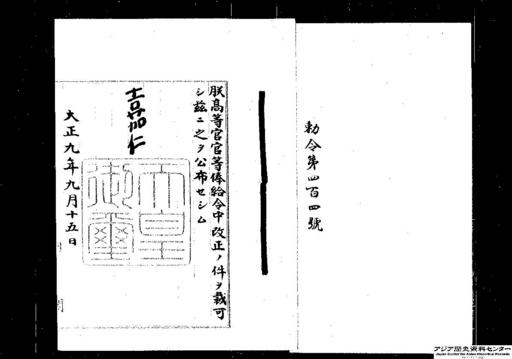 勅令第四百四號
朕高等官官等俸給令中改正ノ件ヲ裁可
シ茲ニ之ヲ公布セシム
嘉仁
天皇
御璽
大正九年九月十五日
アジア歴史資料センター
Japan Center for Asian Historical Records